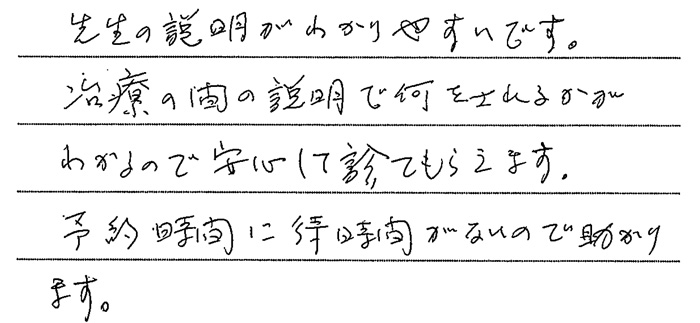 先生の説明がわかりやすいです。
治療の間の説明で何をされるかが
わかるので安心して診てもらえます。
予約時間に待時間がないので助かり
ます。